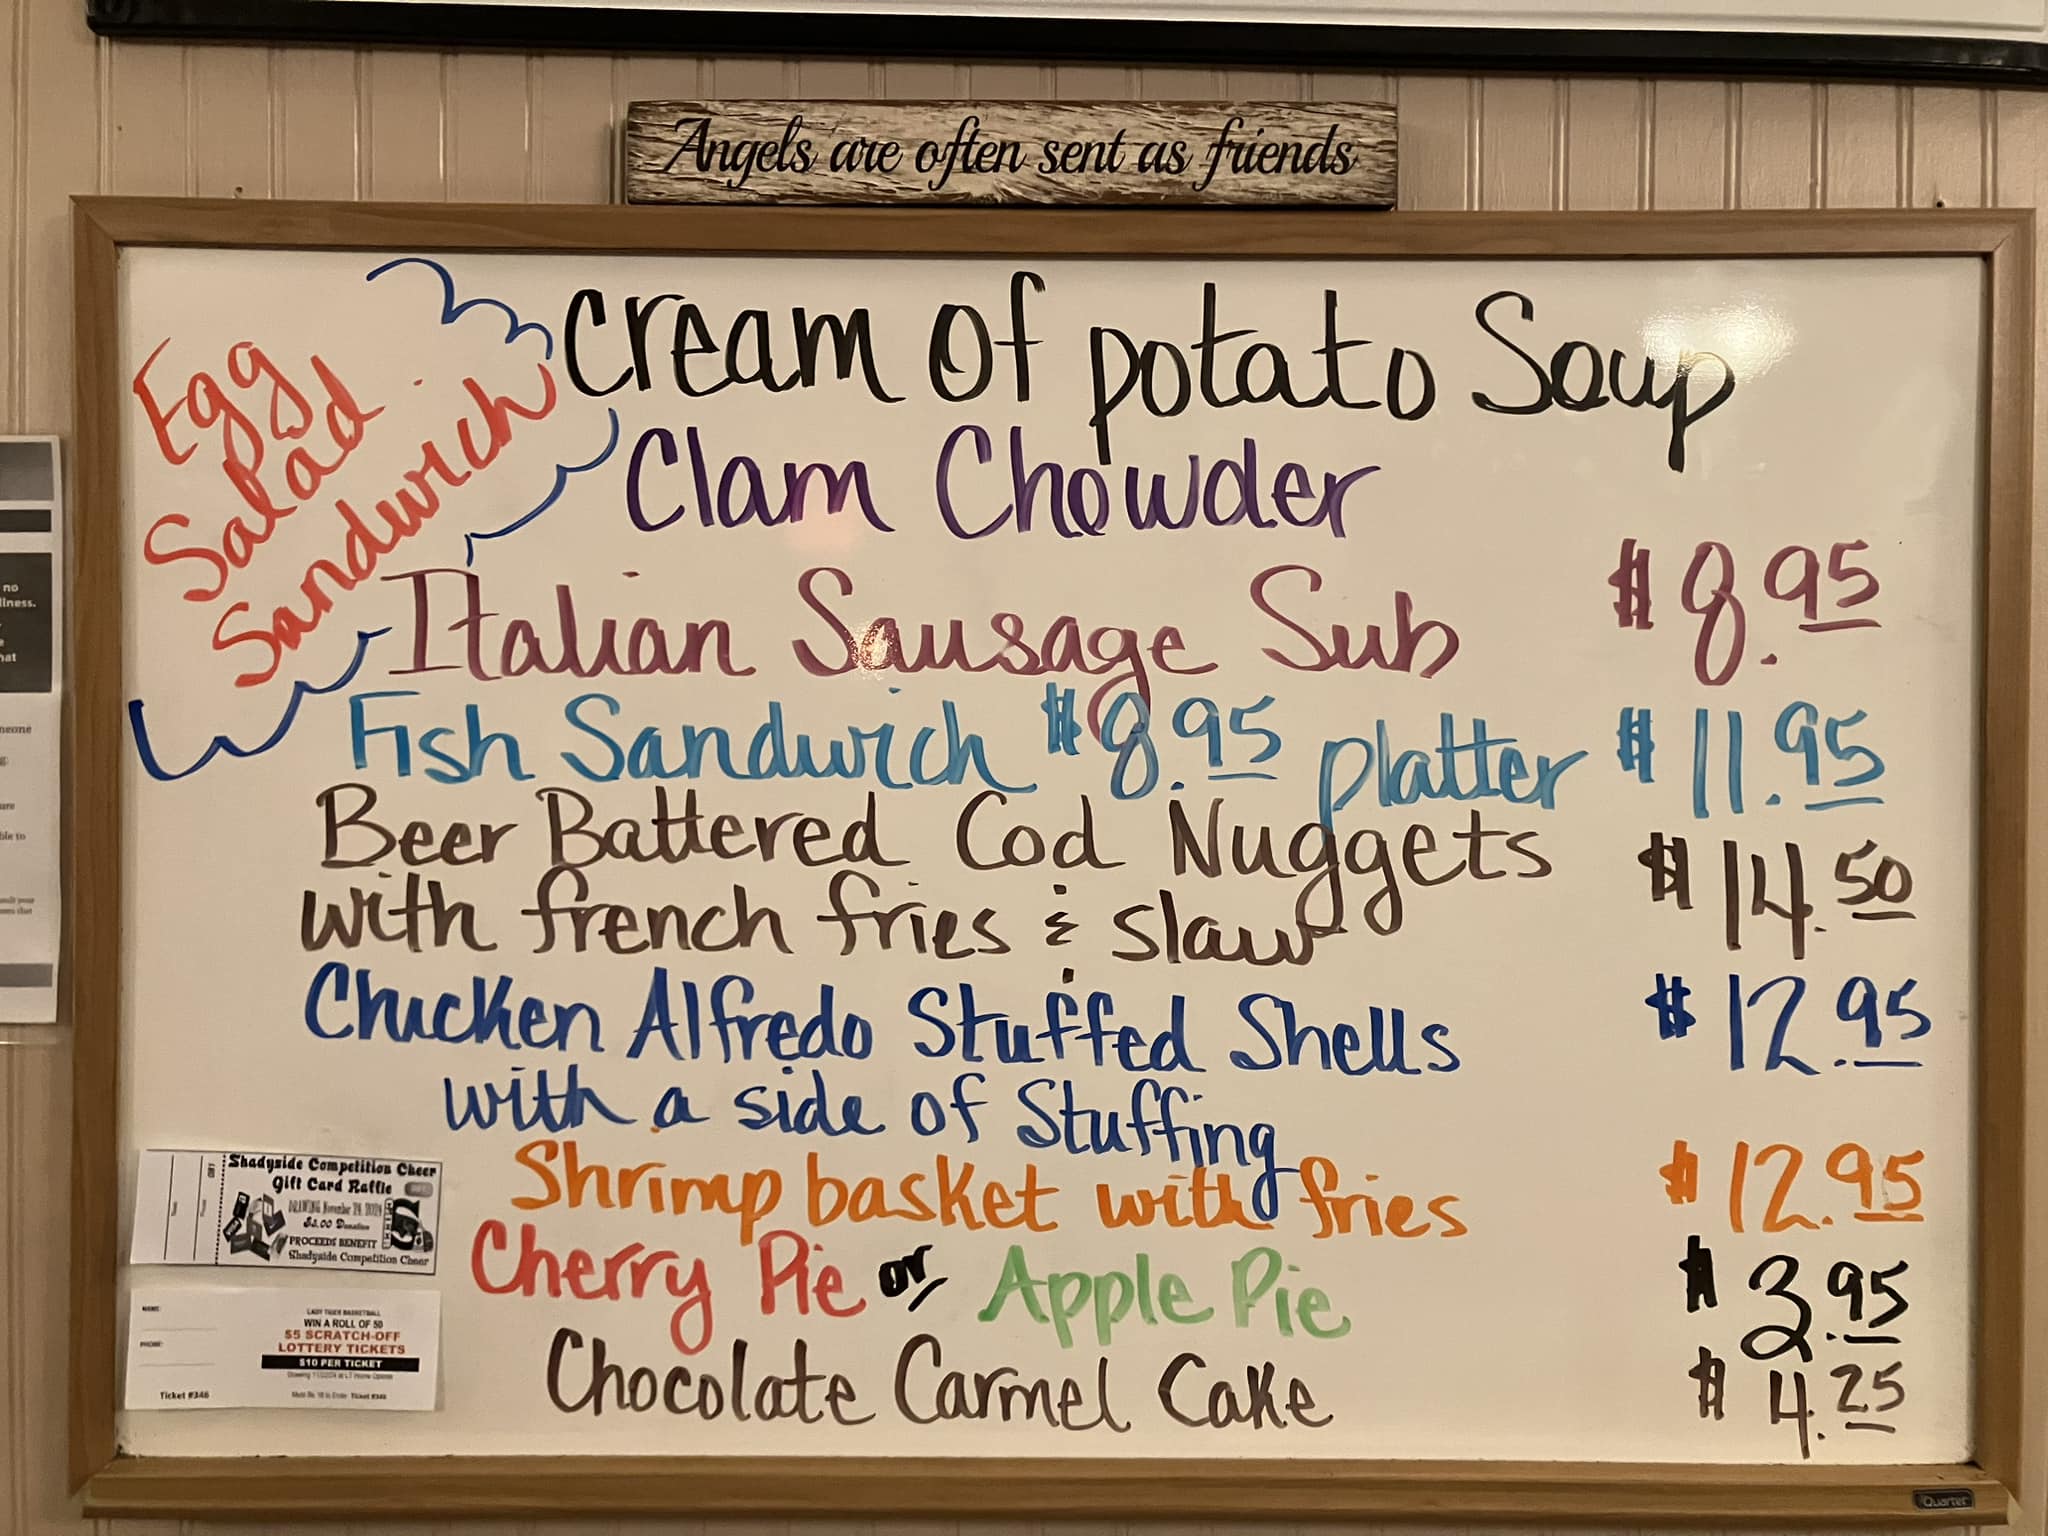 Angels are often sent as friends
Egg
Salad
Sandwich
Cream of potato Soup
Clam Chowder
Italian Sausage Sub $8.95
Fish Sandwich $8.95 platter $11.95
Beer Battered Cod Nuggets $14.50
with french fries & slaw
Chicken Alfredo Stuffed Shells $12.95
with a side of Stuffing
Shrimp basket with fries $12.95
Cherry Pie or Apple Pie $3.95
Chocolate Carmel Cake $4.25
Shadyside Competition Cheer
Gift Card Raffle
DRAWING November 24, 2024
$5.00 Donation
PROCEEDS BENEFIT
Shadyside Competition Cheer
NAME:
PHONE:
Ticket #346
LADY TIGER BASKETBALL
WIN A ROLL OF 50
$5 SCRATCH-OFF
LOTTERY TICKETS
$10 PER TICKET
Must Be 18 to Enter Ticket #346
no
llness.
hat
meone
ure
ble to
Quartet